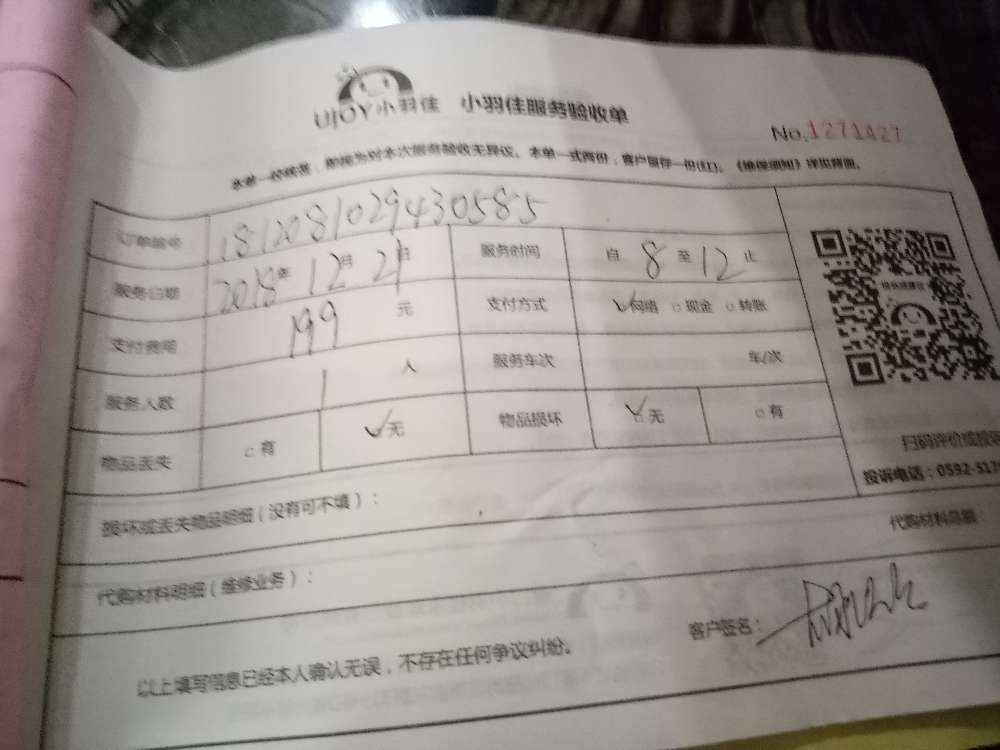 UJOY小羽佳 小羽佳服务验收单
No.1271427
本单一经核签,即视为对本次服务验收无异议。本单一式两份,客户留存一份(红)。《维保须知》详见背面。
订单编号 181208102943 0585
服务日期 2018年12月21日 服务时间 自8至12止
支付费用 199元 支付方式 网络 现金 转账
服务人数 1人 服务车次 车/次
物品丢失 有 无 物品损坏 无 有
扫码评价或投
投诉电话:0592-517
损坏或丢失物品明细(没有可不填):
代购材料明细(维修业务): 代购材料总额
客户签名:
以上填写信息已经本人确认无误,不存在任何争议纠纷。